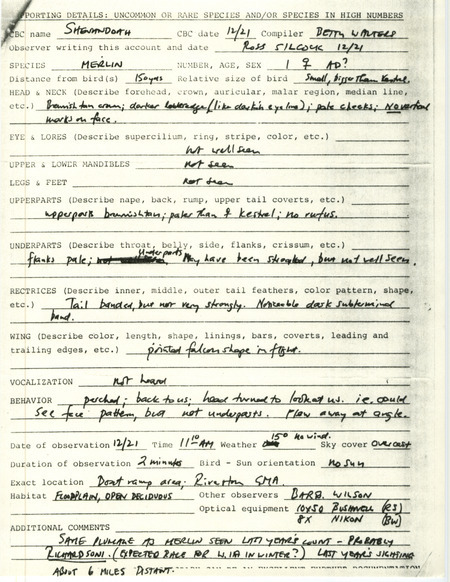 PORTING DETAILS: UNCOMMON OR RARE SPECIES AND/OR SPECIES IN HIGH NUMBERS
CBC name SHENANDOAH CBC date 12/21 Compiler BETTY WALTERS
Observer writing this account and date ROSS SILCOCK 12/21
SPECIES MERLIN NUMBER, AGE, SEX 1 ♀ AD?
Distance from bird(s) 15 yds Relative size of bird Small, bigger than Kestrel.
HEAD & NECK (Describe forehead, crown, auricular, malar region, median line,
etc.) Brownish tan crown; darker (like dark in eye line); pale cheeks; No vertical
marks on face.
EYE & LORES (Describe supercilium, ring, stripe, color, etc.)
not well seen
UPPER & LOWER MANDIBLES not seen
LEGS & FEET not seen
UPPERPARTS (Describe nape, back, rump, upper tail coverts, etc.)
upperparts brownish tan; paler than ♀ Kestrel; no rufus.
UNDERPARTS (Describe throat, belly, side, flanks, crissum, etc.)
flanks pale; Underparts may have been streaked, but not well seen.
RECTRICES (Describe inner, middle, outer tail feathers, color pattern, shape,
etc.) Tail banded, but not very strongly. Noticeable dark subterminal
band.
WING (Describe color, length, shape, linings, bars, coverts, leading and
trailing edges, etc.) pointed falcon shape in flight.
VOCALIZATION not heard
BEHAVIOR perched; back to us; head turned to look at us. i.e. could
see face pattern, but not underparts. Flew away at angle.
Date of observation 12/21 Time 11:10 AM Weather 15° no wind. Sky cover OVERCAST
Duration of observation 2 minutes Bird - Sun orientation no sun
Exact location Boat ramp area, Riverton GMA.
Habitat FLOODPLAIN, OPEN DECIDUOUS Other observers BARB. WILSON
Optical equipment 10x50 BUSHNELL (RS)
8X NIKON (BW)
ADDITIONAL COMMENTS
SAME PLUMAGE AS MERLIN SEEN LAST YEAR'S COUNT - PROBABLY
RICHARDSONI. (EXPECTED RACE FOR W. IA IN WINTER?) LAST YEAR'S SIGHTING
ABOUT 6 MILES DISTANT.